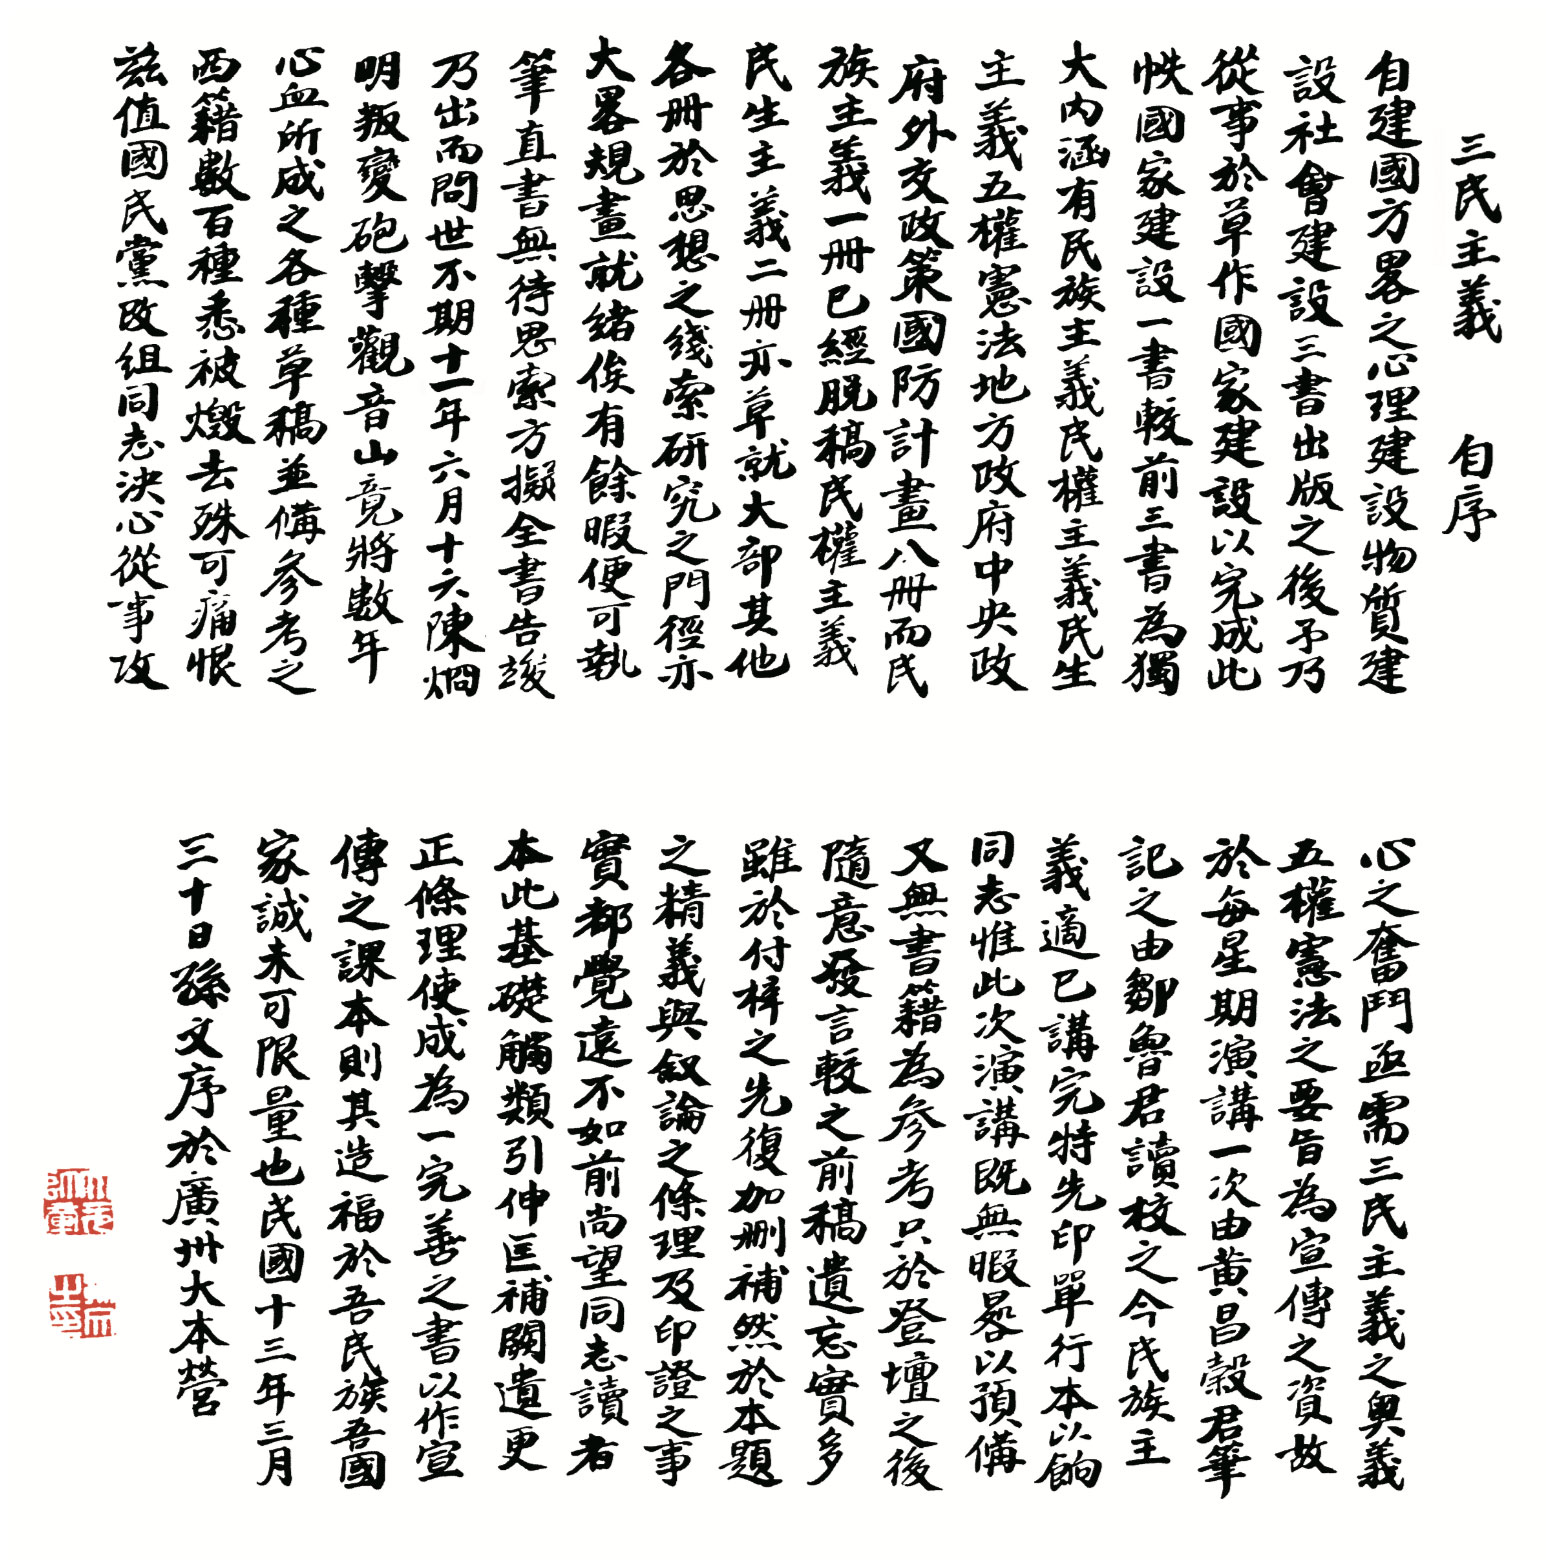 三民主義　自序
自建國方畧之心理建設物質建
設社會建設三書出版之後予乃
從事於草作國家建設以完成此
帙國家建設一書較前三書為獨
大內涵有民族主義民權主義民生
主義五權憲法地方政府中央政
府外交政策國防計畫八冊而民
族主義一冊已經脱稿民權主義
民生主義二冊亦草就大部其他
各冊於思想之綫索研究之門徑亦
大畧規畫就緒俟有餘暇便可執
筆直書無待思索方擬全書告竣
乃出而問世不期十一年六月十六陳烱
明叛變砲擊觀音山竟將數年
心血所成之各種草稿並備參考之
西籍數百種悉被燬去殊可痛恨
茲值國民黨改組同志決心從事攻
心之奮鬥亟需三民主義之奥義
五權憲法之要旨為宣傳之資故
於每星期演講一次由黃昌穀君筆
記之由鄒魯君讀校之今民族主
義適已講完特先印單行本以餉
同志惟此次演講既無暇晷以預備
又無書籍為參考只於登壇之後
隨意發言較之前稿遺忘實多
雖於付梓之先復加刪補然於本題
之精義與敘論之條理及印證之事
實都覺遠不如前尚望同志讀者
本此基礎觸類引伸匡補闕遺更
正條理使成為一完善之書以作宣
傳之課本則其造福於吾民族吾國
家誠未可限量也民國十三年三月
三十日孫文序於廣州大本營